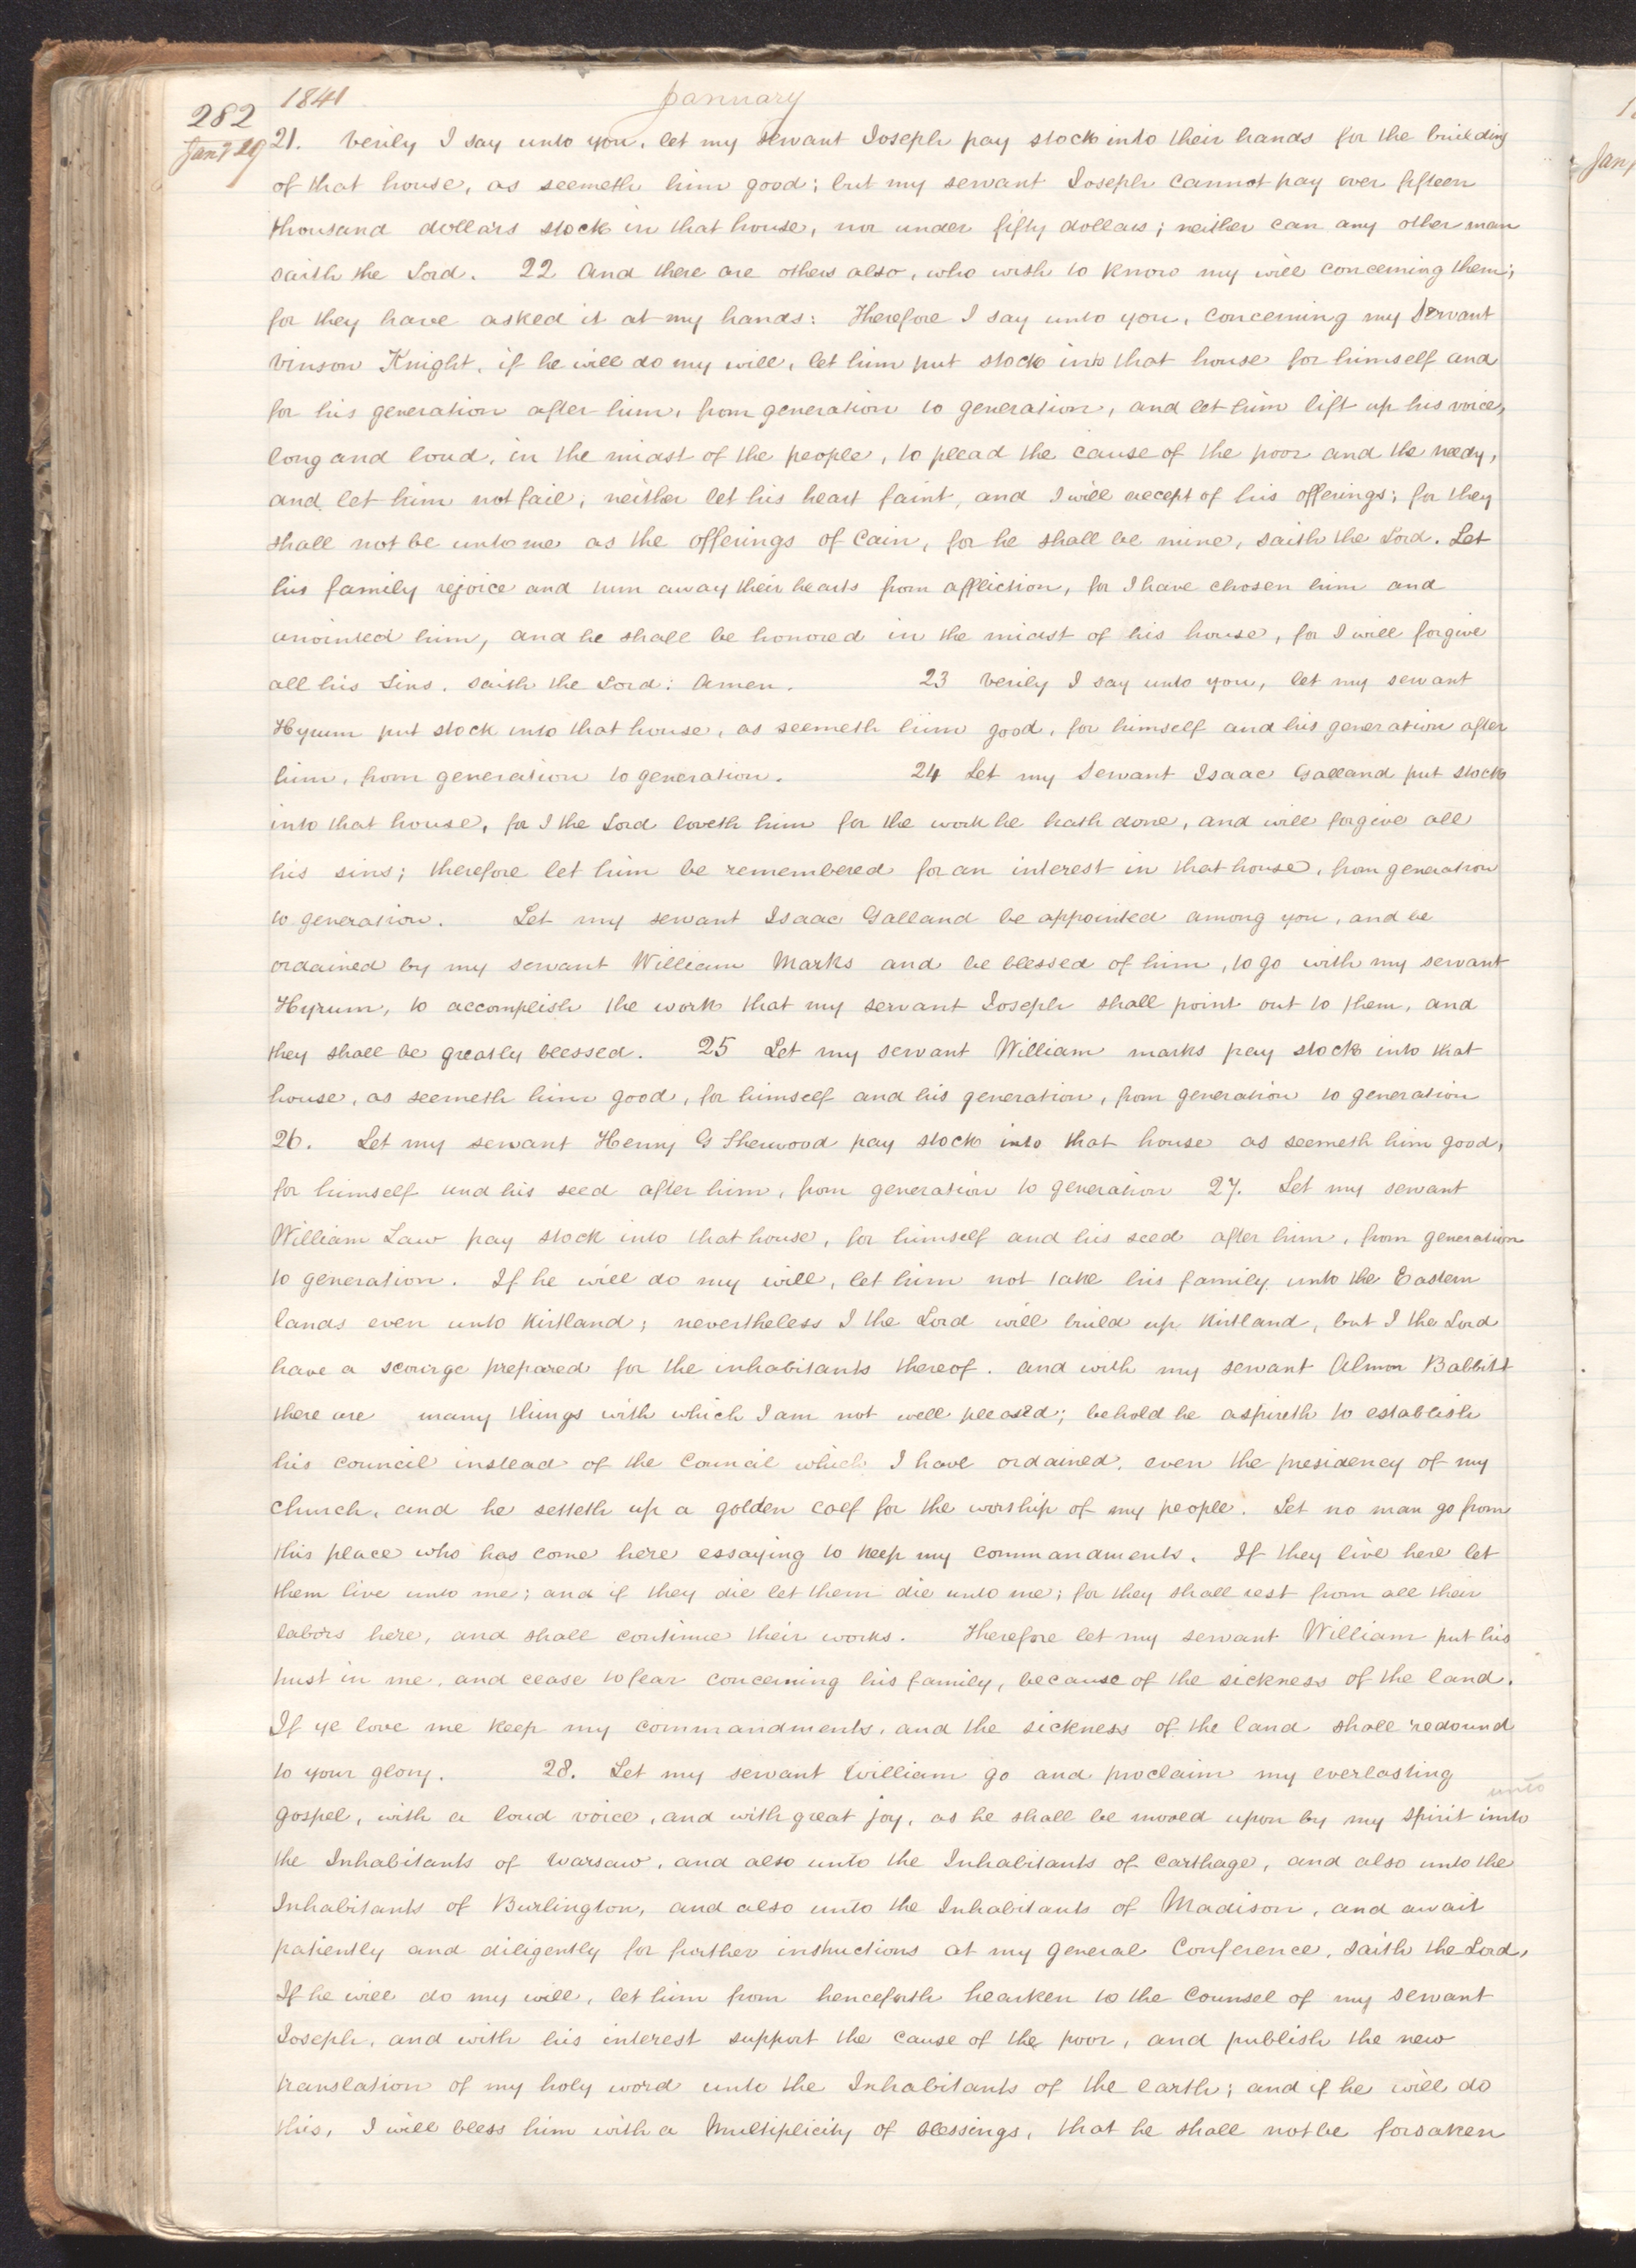 282
1841
January
Jany 29
21. Verily I say unto you, let my servant Joseph pay stock into their hands for the building
of that house, as seemeth him good; but my servant Joseph cannot pay over fifteen
thousand dollars stock in that house, nor under fifty dollars; neither can any other man
saith the Lord. 22 And there are others also, who wish to know my will concerning them;
for they have asked it at my hands: Therefore I say unto you, concerning my Servant
Vinson Knight, if he will do my will, let him put stock into that house for himself and
for his generation after him, from generation to generation, and let him lift up his voice,
long and loud, in the midst of the people, to plead the cause of the poor and the needy,
and let him not fail, neither let his heart faint, and I will accept of his offerings; for they
shall not be unto me as the offerings of Cain, for he shall be mine, saith the Lord. Let
his family rejoice and turn away their hearts from affliction, for I have chosen him and
anointed him, and he shall be honored in the midst of his house, for I will forgive
all his sins, saith the Lord; Amen. 23 Verily I say unto you, let my servant
Hyrum put stock into that house, as seemeth him good, for himself and his generation after
him, from generation to generation. 24 Let my Servant Isaac Galland put stock
into that house, for I the Lord loveth him for the work he hath done, and will forgive all
his sins; therefore let him be remembered for an interest in that house, from generation
to generation. Let my servant Isaac Galland be appointed among you, and be
ordained by my servant William Marks and be blessed of him, to go with my servant
Hyrum, to accomplish the work that my servant Joseph shall point out to them, and
they shall be greatly blessed. 25 Let my servant William marks pay stock into that
house, as seemeth him good, for himself and his generation, from generation to generation
26. Let my servant Henry G Sherwood pay stock into that house as seemeth him good,
for himself and his seed after him, from generation to generation 27. Let my servant
William Law pay stock into that house, for himself and his seed after him, from generation
to generation. If he will do my will, let him not take his family unto the Eastern
lands even unto Kirtland; nevertheless I the Lord will build up Kirtland, but I the Lord
have a scourge prepared for the inhabitants thereof. and with my servant Almon Babbitt
there are many things with which I am not well pleased; behold he aspireth to establish
his council instead of the Council which I have ordained, even the presidency of my
church, and he setteth up a golden calf for the worship of my people. Let no man go from
this place who has come here essaying to keep my commandments. If they live here let
them live unto me; and if they die let them die unto me; for they shall rest from all their
labors here, and shall continue their works. Therefore let my servant William put his
trust in me, and cease to fear concerning his family, because of the sickness of the land.
If ye love me keep my commandments, and the sickness of the land shall redound
to your glory. 28. Let my servant William go and proclaim my everlasting
unto
gospel, with a loud voice, and with great joy, as he shall be moved upon by my spirit into
the Inhabitants of Warsaw, and also unto the Inhabitants of Carthage, and also unto the
Inhabitants of Burlington, and also unto the Inhabitants of Madison, and await
patiently and diligently for further instructions at my general Conference, saith the Lord.
If he will do my will, let him from henceforth hearken to the Counsel of my servant
Joseph, and with his interest support the cause of the poor, and publish the new
translation of my holy word unto the Inhabitants of the earth; and if he will do
this, I will bless him with a Multiplicity of blessings, that he shall not be forsaken
Jany